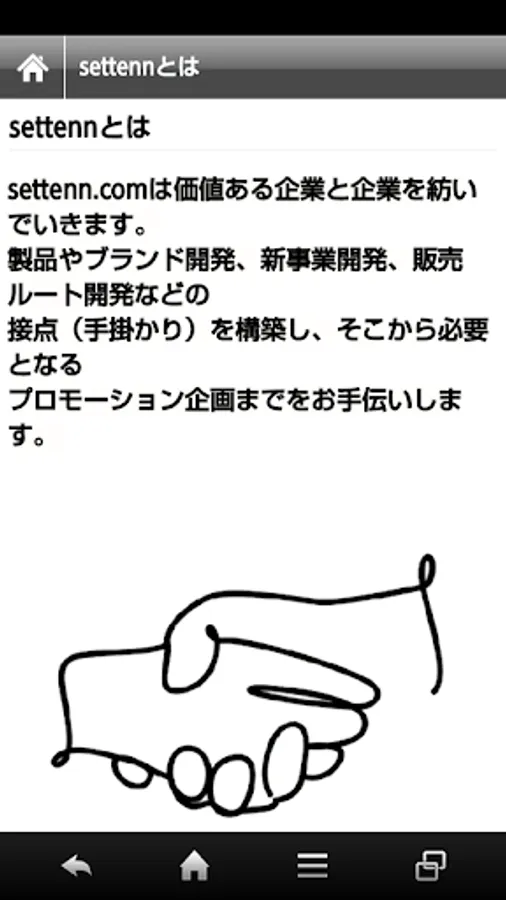 settennとは
settennとは
settenn.comは価値ある企業と企業を紡い
でいきます。
製品やブランド開発、新事業開発、販売
ルート開発などの
接点（手掛かり）を構築し、そこから必要
となる
プロモーション企画までをお手伝いしま
す。